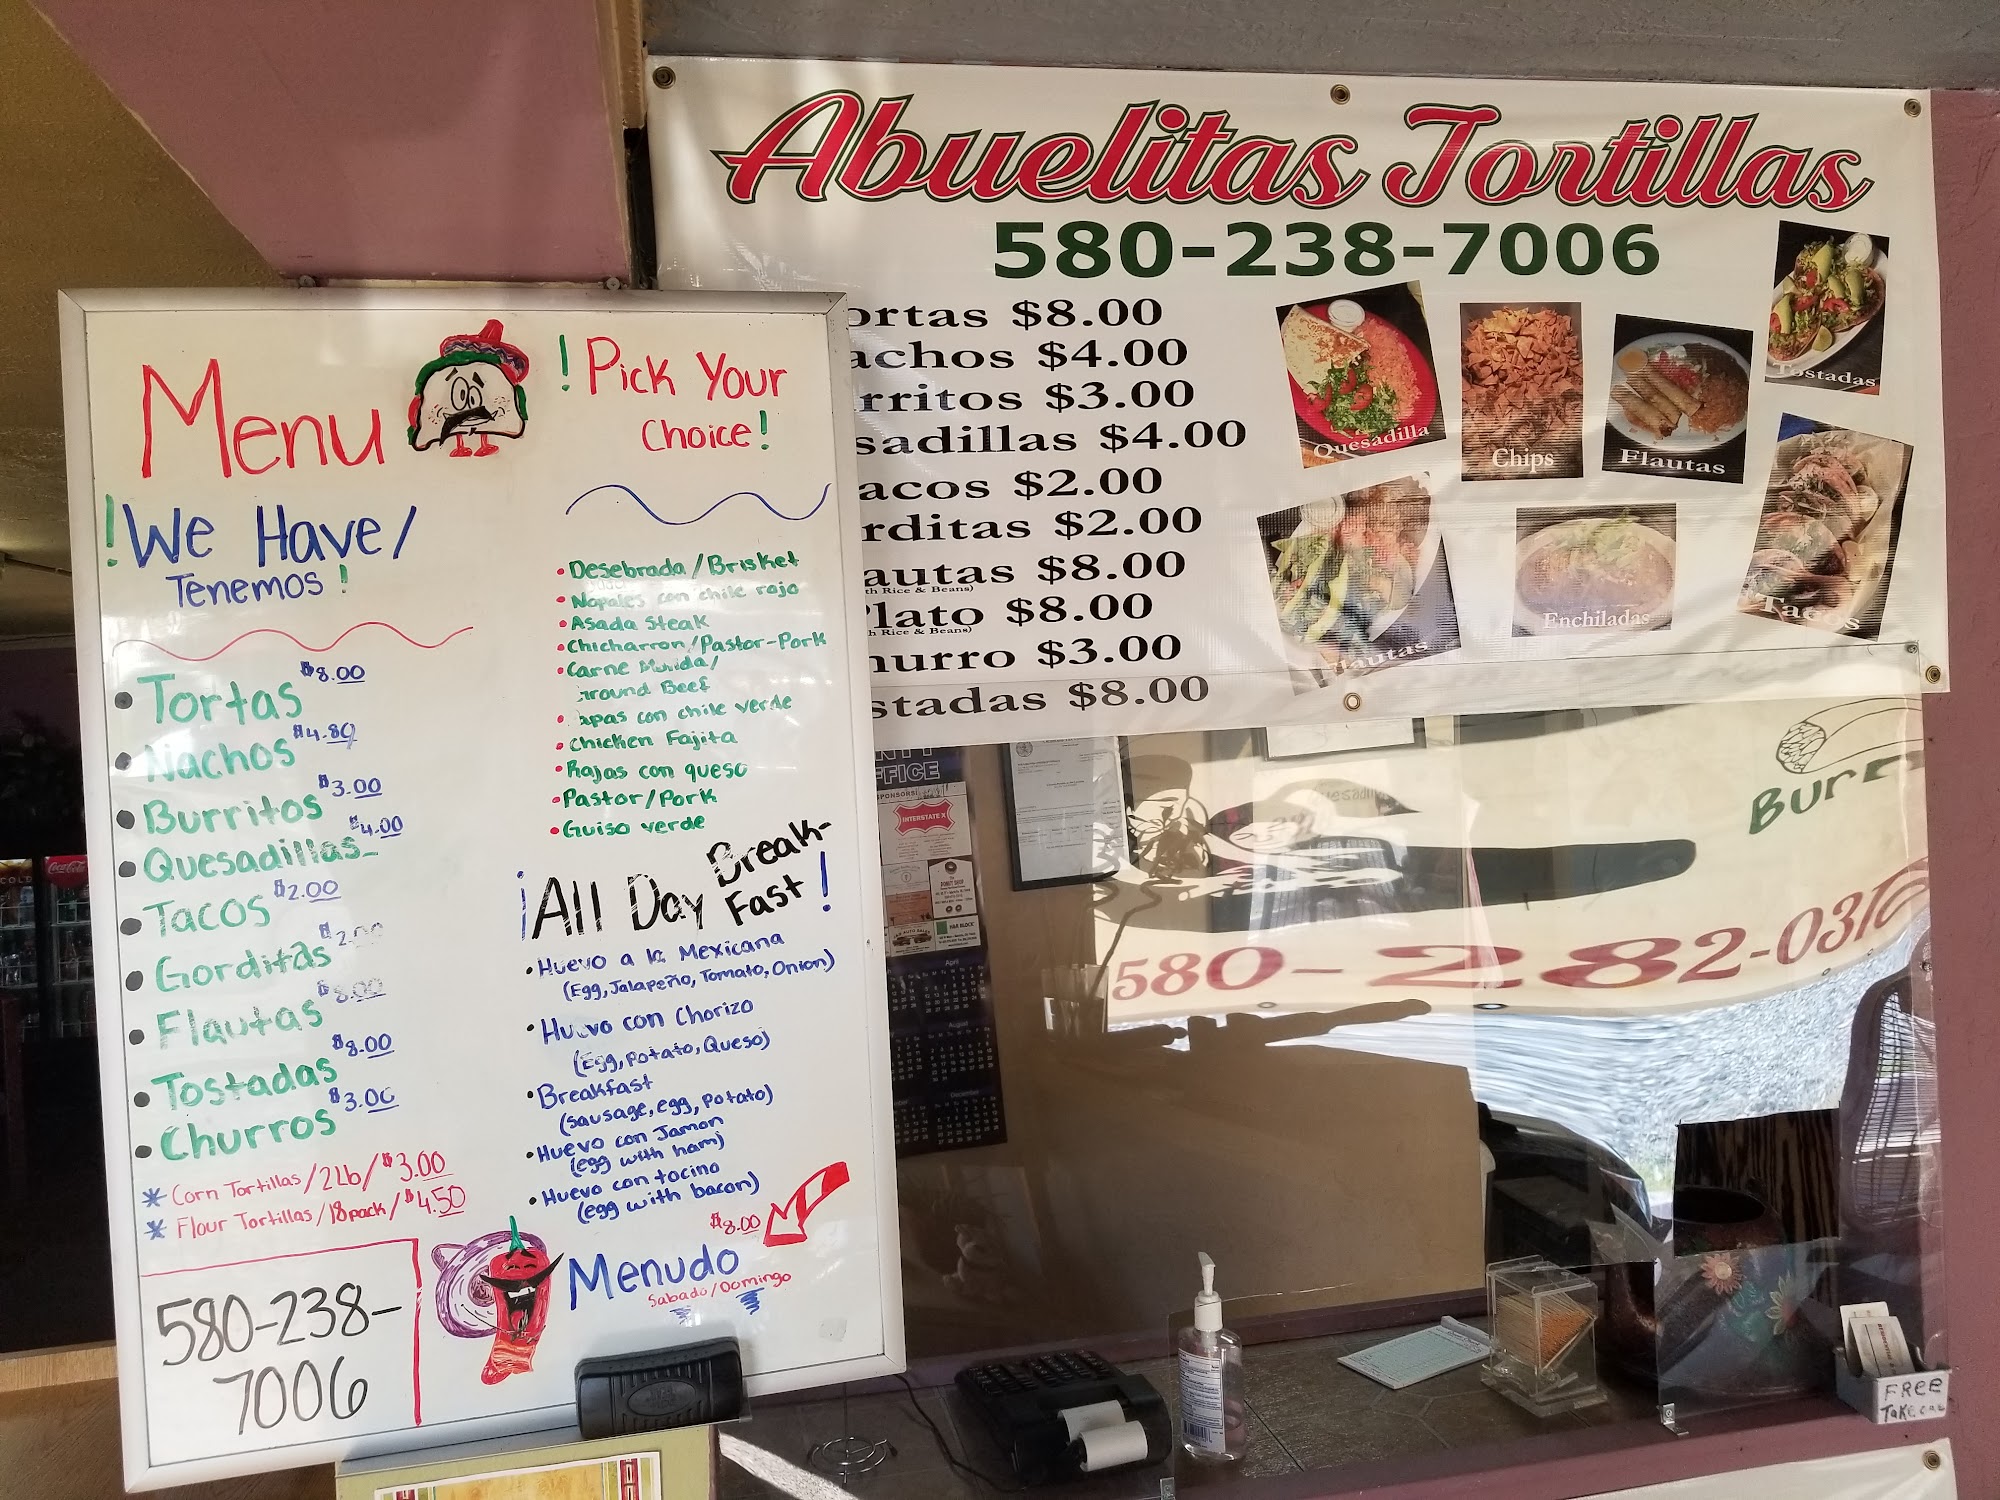 Abuelitas Tortillas
580-238-7006
ortas $8.00
achos $4.00
rritos $3.00
sadillas $4.00
acos $2.00
rditas $2.00
autas $8.00
th Rice & Beans)
lato $8.00
h Rice & Beans)
hurro $3.00
stadas $8.00
Quesadilla
Chips
Flautas
Tostadas
Enchiladas
Tacos
Menu
!We Have/
Tenemos!
• Tortas $8.00
• Nachos $4.80
• Burritos $3.00
• Quesadillas $4.00
• Tacos $2.00
• Gorditas $2.00
• Flautas $8.00
• Tostadas $8.00
• Churros $3.00
* Corn Tortillas/2Lb/$3.00
* Flour Tortillas/18pack/$4.50
580-238-
7006
!Pick Your
Choice!
• Desebrada/Brisket
• Nopales con chile rojo
• Asada Steak
• Chicharron/Pastor-Pork
• Carne Molida/
Ground Beef
• apas con chile verde
• Chicken Fajita
• Rajas con queso
• Pastor/Pork
• Guiso verde
¡All Day Break-
Fast!
• Huevo a la Mexicana
(Egg, Jalapeño, Tomato, Onion)
• Huevo con Chorizo
(Egg, Potato, Queso)
• Breakfast
(sausage, egg, potato)
• Huevo con Jamon
(egg with ham)
• Huevo con tocino
(egg with bacon)
$8.00
Menudo
Sabado/Domingo
FFICE
INTERSTATE X
DONUT SHOP
H&R BLOCK
April
August
December
Burr
580-282-03
Coca-Cola
COLD
FREE
Take